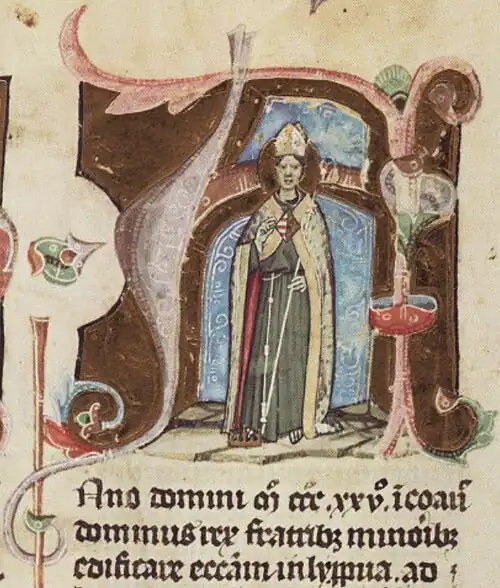 Anno domini m̊ ccc̊.xxv̊. īcoaū
dominus rex fratribꝫ minoribꝫ
edificare eccām in lyppua. ad